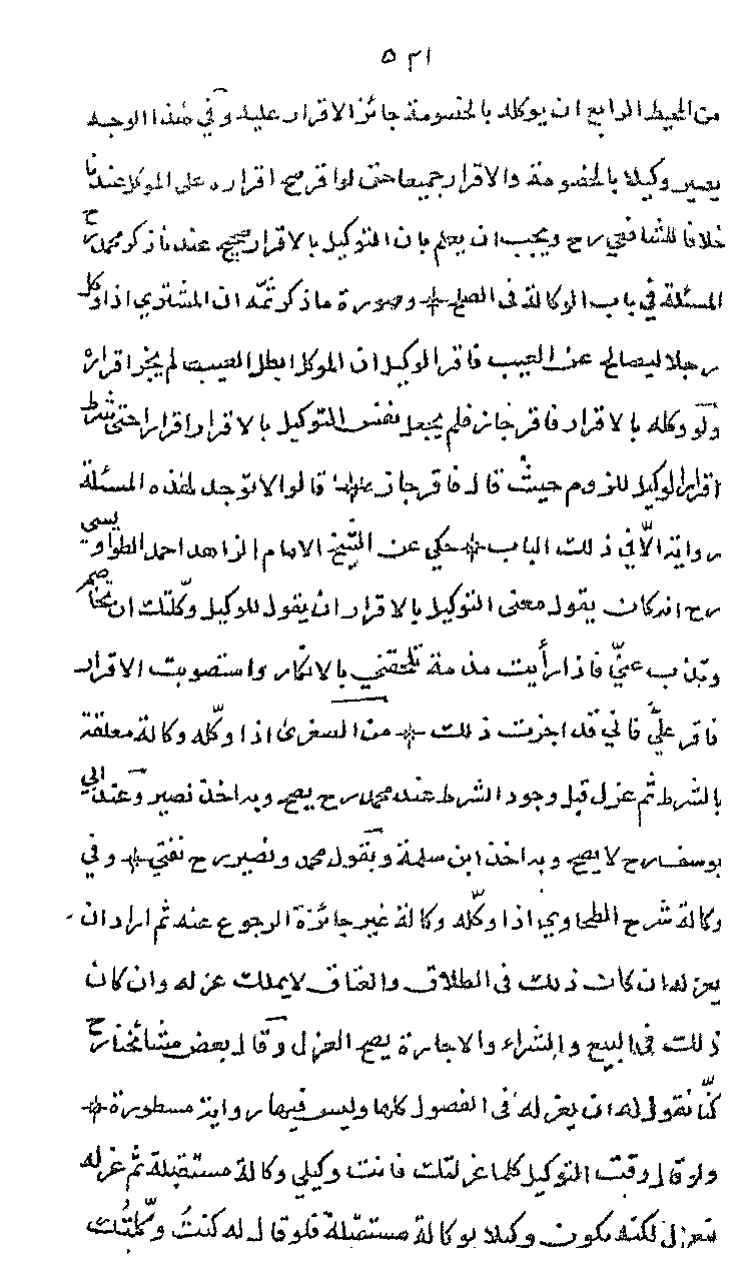 ٥٣١
من المحيط الرابع ان يوكله بالخصومة جائز الاقرار عليه وفي هذا الوجه
يصير وكيلا بالخصومة والاقرار جميعا حتى لو اقر صح اقراره على الموكل عندنا
خلافا للشافعي رح ويجب ان يعلم بان التوكيل بالاقرار صحيح عندنا ذكر محمد رح
المسئلة في باب الوكالة فى الصلح * وصورة ما ذكر ثمّه ان المشتري اذا وكل
رجلا ليصالح عن العيب فاقر الوكيل ان الموكل ابطل العيب لم يجز اقراره
ولو وكله بالاقرار فاقر جاز فلم يجعل نفس التوكيل بالاقرار اقرارا حتى شرط
اقرار الوكيل للزوم حيث قال فاقر جاز عليه قالوا لا توجد لهذه المسئلة
رواية الّا في ذلك الباب * حكي عن الشيخ الامام الزاهد احمد الطواويسى
رح انه كان يقول معنى التوكيل بالاقرار ان يقول للوكيل وكّلتك ان تخاصم
وتذب عنّي فاذا رأيت مذمة تلحقني بالانكار واستصوبت الاقرار
فاقر عليّ فاني قد اجزت ذلك * من الصغرى اذا وكّله وكالة معلقة
بالشرط ثم عزل قبل وجود الشرط عند محمد رح يصح وبه اخذ نصير وعند ابي
يوسف رح لا يصح وبه اخذ ابن سلمة وبقول محمد ونصير رح نفتي * وفي
وكالة شرح الطحاوي اذا وكّله وكالة غير جائزة الرجوع عنه ثم اراد ان
يعزله ان كان ذلك فى الطلاق والعتاق لا يملك عزله وان كان
ذلك في البيع والشراء والاجارة يصح العزل وقال بعض مشائخنا رح
كنّا نقول له ان يعزله فى الفصول كلها وليس فيها رواية مسطورة *
ولو قال وقت التوكيل كلما عزلتك فانت وكيلي وكالة مستقبلة ثم عزله
ينعزل لكنه يكون وكيلا بوكالة مستقبلة فلو قال له كنتُ وكّلتُك